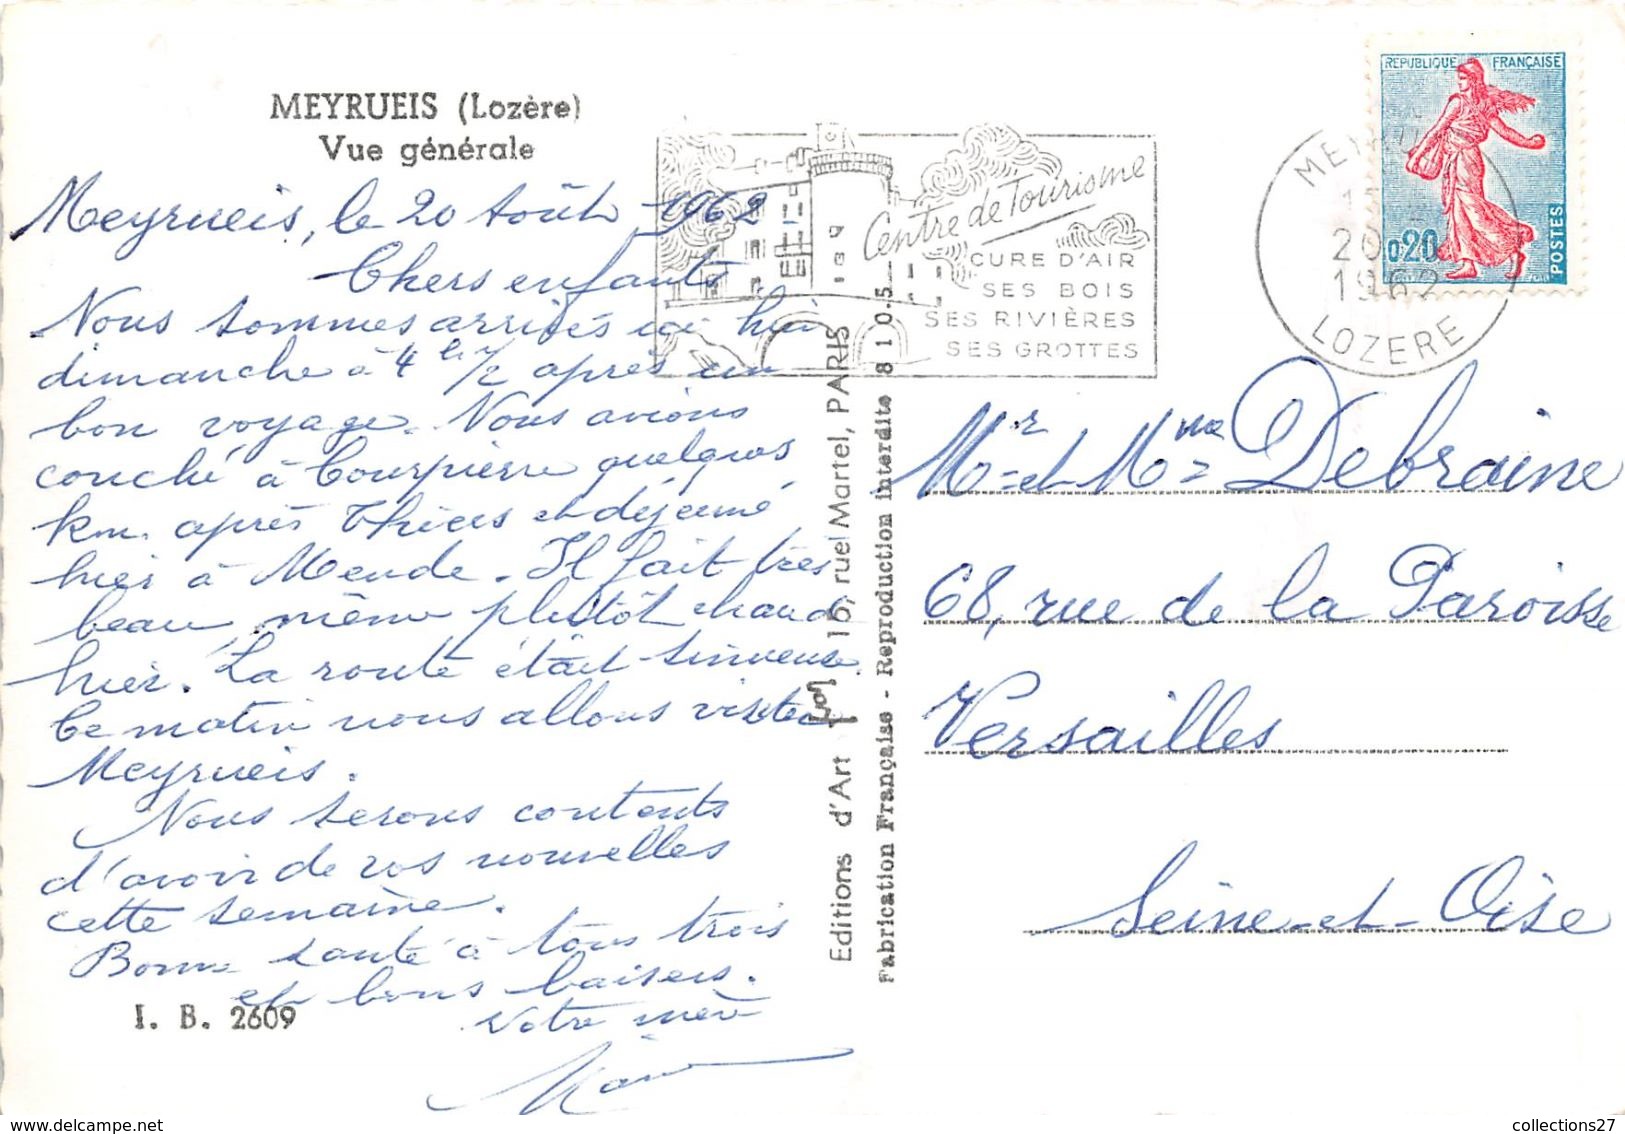 MEYRUEIS (Lozère)
Vue générale
Meyrueis, le 20 Août 1962
Chers enfants
Nous sommes arrivés ici hier
dimanche à 4 h 1/2 après un
bon voyage. Nous avions
couché à Courpierre quelques
km. après Thiers et déjeuné
hier à Mende. Il fait très
beau, même plutôt chaud
hier. La route était sinueuse.
Ce matin nous allons visiter
Meyrueis.
Nous serons contents
d'avoir de vos nouvelles
cette semaine.
Bonne santé à tous trois
et bons baisers.
Votre mère
I. B. 2609
Editions d'Art Yvon 16, rue Martel, PARIS
Fabrication Française - Reproduction interdite 8 1 0.5
Centre de Tourisme
CURE D'AIR
SES BOIS
SES RIVIÈRES
SES GROTTES
20
1962
LOZERE
REPUBLIQUE FRANÇAISE
0,20
POSTES
Mr et Mme Debraine
68, rue de la Paroisse
Versailles
Seine-et-Oise
collections27